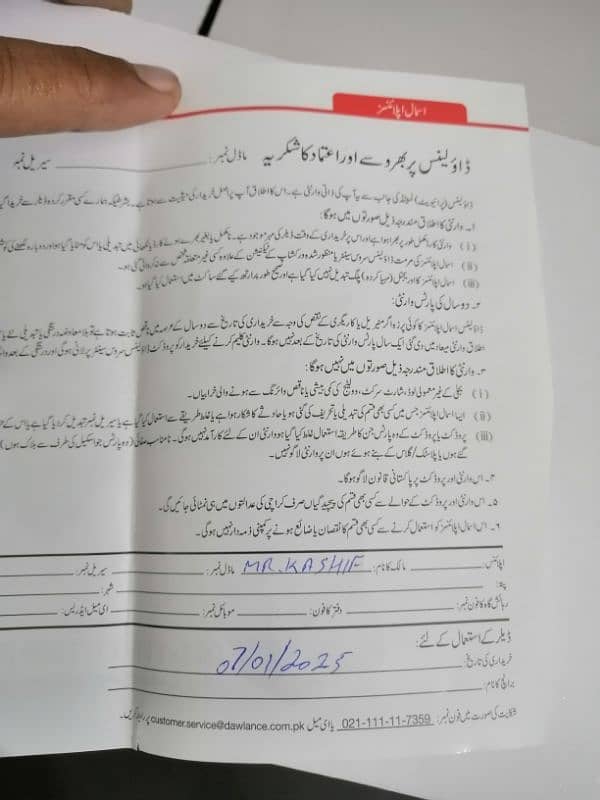 اسمال اپلائنسز
ڈاؤلینس پر بھروسے اور اعتماد کا شکریہ ماڈل نمبر: سیریل نمبر
ڈاؤلینس (پرائیویٹ) لمیٹڈ کی جانب سے یہ آپ کی ذاتی وارنٹی ہے۔ اس کا اطلاق آپ پر اصل خریدار کی حیثیت سے ہوتا ہے۔ بشرطیکہ ہمارے کسی مقرر کردہ ڈیلر سے خریدا گیا
۱۔ وارنٹی کا اطلاق مندرجہ ذیل صورتوں میں ہوگا:
(i) وارنٹی کارڈ مکمل طور پر بھرا ہوا ہے اور اس پر خریداری کے وقت ڈیلر کی مہر موجود ہے۔
(ii) اسمال اپلائنسز کی مرمت ڈاؤلینس سروس سینٹر یا منظور شدہ ورکشاپ کے ٹیکنیشن کے علاوہ کسی غیر متعلقہ شخص سے نہ کروائی گئی ہو۔
(iii) اسمال اپلائنسز کا اوریجنل (مہیا کردہ) پلگ تبدیل نہیں کیا گیا ہے اور صحیح طور پر ارتھ کیے گئے ساکٹ میں استعمال کیا گیا ہو۔
۲۔ دو سال کی پارٹس وارنٹی:
ڈاؤلینس اسمال اپلائنسز کا کوئی پرزہ اگر میٹیریل یا کاریگری کے نقص کی وجہ سے خریداری کی تاریخ سے دو سال کے عرصہ میں ناقص ثابت ہوتا ہے تو بلا معاوضہ درستگی یا تبدیلی
اطلاق وارنٹی میعاد میں دی گئی ایک سال پارٹس وارنٹی کی تاریخ کے بعد نہیں ہوگا۔ وارنٹی کلیم کرنے کیلئے خریدار کو پروڈکٹ ڈاؤلینس سروس سینٹر پر لانی ہوگی اور درستگی کے بعد
۳۔ وارنٹی کا اطلاق مندرجہ ذیل صورتوں میں نہیں ہوگا:
(i) بجلی کے غیر معمولی لوڈ، شارٹ سرکٹ، وولٹیج کی کمی بیشی یا ناقص وائرنگ سے ہونے والی خرابیاں۔
(ii) ایسا اسمال اپلائنسز جس میں بھی کسی قسم کی تبدیلی یا تحریف کی گئی ہو یا حادثے کا شکار ہوا ہے یا غلط طریقے سے استعمال کیا گیا ہے یا سیریل نمبر تبدیل کر دیا گیا ہے
(iii) پروڈکٹ یا پروڈکٹ کے وہ پارٹس جن کا طریقہ استعمال غلط کیا گیا ہو وارنٹی ان کے لئے کارآمد نہیں ہوگی۔
گئے ہوں یا پلاسٹک/گلاس کے بنے ہوئے ہوں ان پر وارنٹی لاگو نہیں۔
۴۔ اس وارنٹی اور پروڈکٹ پر پاکستانی قانون لاگو ہوگا۔
۵۔ اس وارنٹی اور پروڈکٹ کے حوالے سے کسی بھی قسم کی پیچیدگیاں صرف کراچی کی عدالتوں میں ہی نمٹائی جائیں گی۔
۶۔ اس اسمال اپلائنسز کو استعمال کرنے سے کسی بھی قسم کا نقصان یا ضائع ہونے پر کمپنی ذمہ دار نہیں ہوگی۔
اپلائنس: مالک کا نام: MR.KASHIF ماڈل نمبر: سیریل نمبر:
پتہ: شہر:
رہائش گاہ کا فون نمبر: دفتر کا فون: موبائل نمبر: ای میل ایڈریس:
ڈیلر کے استعمال کے لئے:
خریداری کی تاریخ: 07/01/2025
برانچ کا نام:
شکایت کی صورت میں فون نمبر: 021-111-11-7359 یا ای میل customer.service@dawlance.com.pk پر رابطہ کریں۔